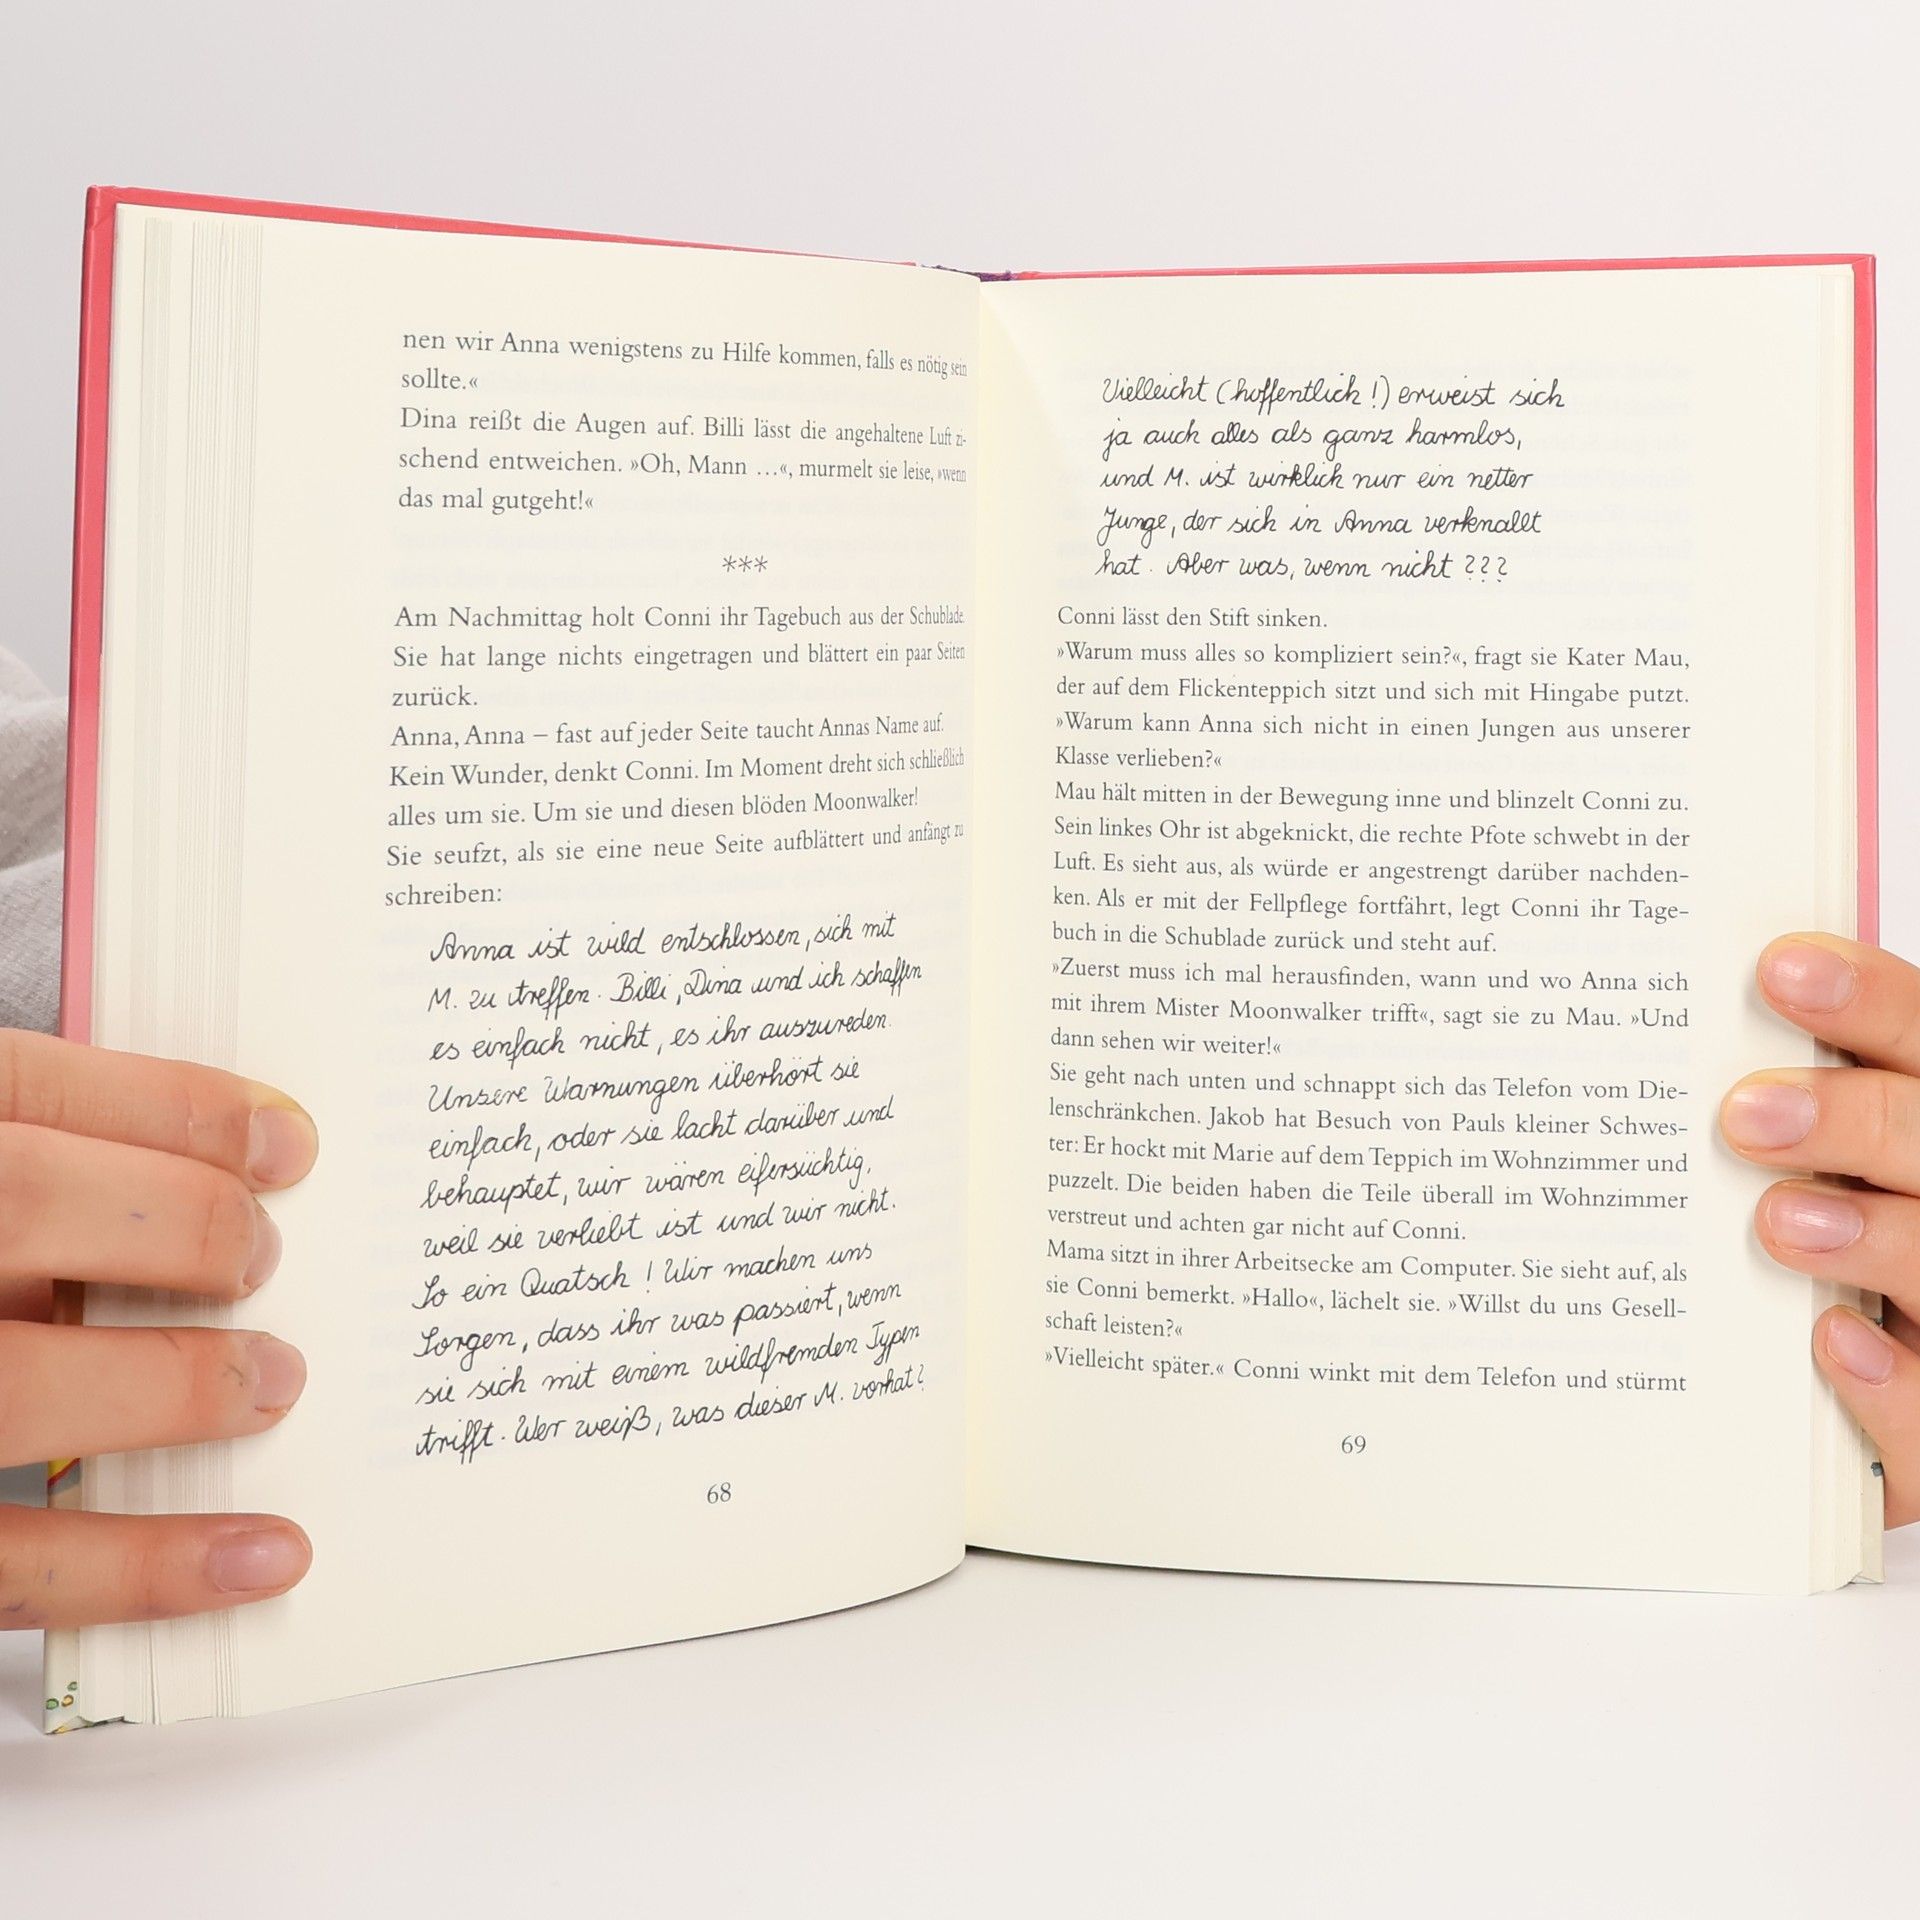 nen wir Anna wenigstens zu Hilfe kommen, falls es nötig sein
sollte.«
Dina reißt die Augen auf. Billi lässt die angehaltene Luft zi-
schend entweichen. »Oh, Mann …«, murmelt sie leise, »wenn
das mal gutgeht!«
***
Am Nachmittag holt Conni ihr Tagebuch aus der Schublade.
Sie hat lange nichts eingetragen und blättert ein paar Seiten
zurück.
Anna, Anna – fast auf jeder Seite taucht Annas Name auf.
Kein Wunder, denkt Conni. Im Moment dreht sich schließlich
alles um sie. Um sie und diesen blöden Moonwalker!
Sie seufzt, als sie eine neue Seite aufblättert und anfängt zu
schreiben:
Anna ist wild entschlossen, sich mit
M. zu treffen. Billi, Dina und ich schaffen
es einfach nicht, es ihr auszureden.
Unsere Warnungen überhört sie
einfach, oder sie lacht darüber und
behauptet, wir wären eifersüchtig,
weil sie verliebt ist und wir nicht.
So ein Quatsch! Wir machen uns
Sorgen, dass ihr was passiert, wenn
sie sich mit einem wildfremden Typen
trifft. Wer weiß, was dieser M. vorhat?
68
Vielleicht (hoffentlich!) erweist sich
ja auch alles als ganz harmlos,
und M. ist wirklich nur ein netter
Junge, der sich in Anna verknallt
hat. Aber was, wenn nicht???
Conni lässt den Stift sinken.
»Warum muss alles so kompliziert sein?«, fragt sie Kater Mau,
der auf dem Flickenteppich sitzt und sich mit Hingabe putzt.
»Warum kann Anna sich nicht in einen Jungen aus unserer
Klasse verlieben?«
Mau hält mitten in der Bewegung inne und blinzelt Conni zu.
Sein linkes Ohr ist abgeknickt, die rechte Pfote schwebt in der
Luft. Es sieht aus, als würde er angestrengt darüber nachden-
ken. Als er mit der Fellpflege fortfährt, legt Conni ihr Tage-
buch in die Schublade zurück und steht auf.
»Zuerst muss ich mal herausfinden, wann und wo Anna sich
mit ihrem Mister Moonwalker trifft«, sagt sie zu Mau. »Und
dann sehen wir weiter!«
Sie geht nach unten und schnappt sich das Telefon vom Die-
lenschränkchen. Jakob hat Besuch von Pauls kleiner Schwes-
ter: Er hockt mit Marie auf dem Teppich im Wohnzimmer und
puzzelt. Die beiden haben die Teile überall im Wohnzimmer
verstreut und achten gar nicht auf Conni.
Mama sitzt in ihrer Arbeitsecke am Computer. Sie sieht auf, als
sie Conni bemerkt. »Hallo«, lächelt sie. »Willst du uns Gesell-
schaft leisten?«
»Vielleicht später.« Conni winkt mit dem Telefon und stürmt
69